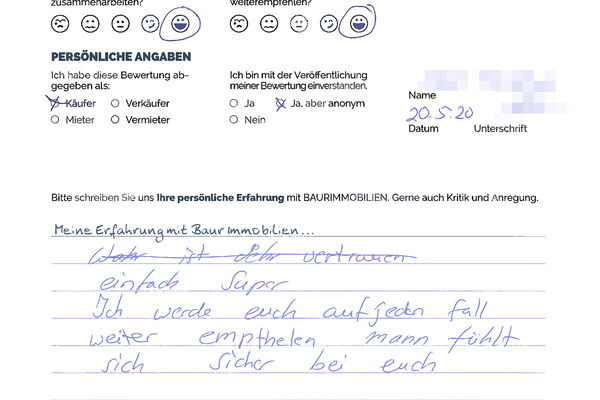 zusammenarbeiten?
weiterempfehlen?
PERSÖNLICHE ANGABEN
Ich habe diese Bewertung ab-
gegeben als:
Käufer
Verkäufer
Mieter
Vermieter
Ich bin mit der Veröffentlichung
meiner Bewertung einverstanden.
Ja
Ja, aber anonym
Nein
Name
20.5.20
Datum
Unterschrift
Bitte schreiben Sie uns Ihre persönliche Erfahrung mit BAURIMMOBILIEN. Gerne auch Kritik und Anregung.
Meine Erfahrung mit Baur Immobilien...
ist sehr vertrauen
einfach Super
Ich werde euch auf jeden fall
weiter empfhelen mann fühlt
sich sicher bei euch